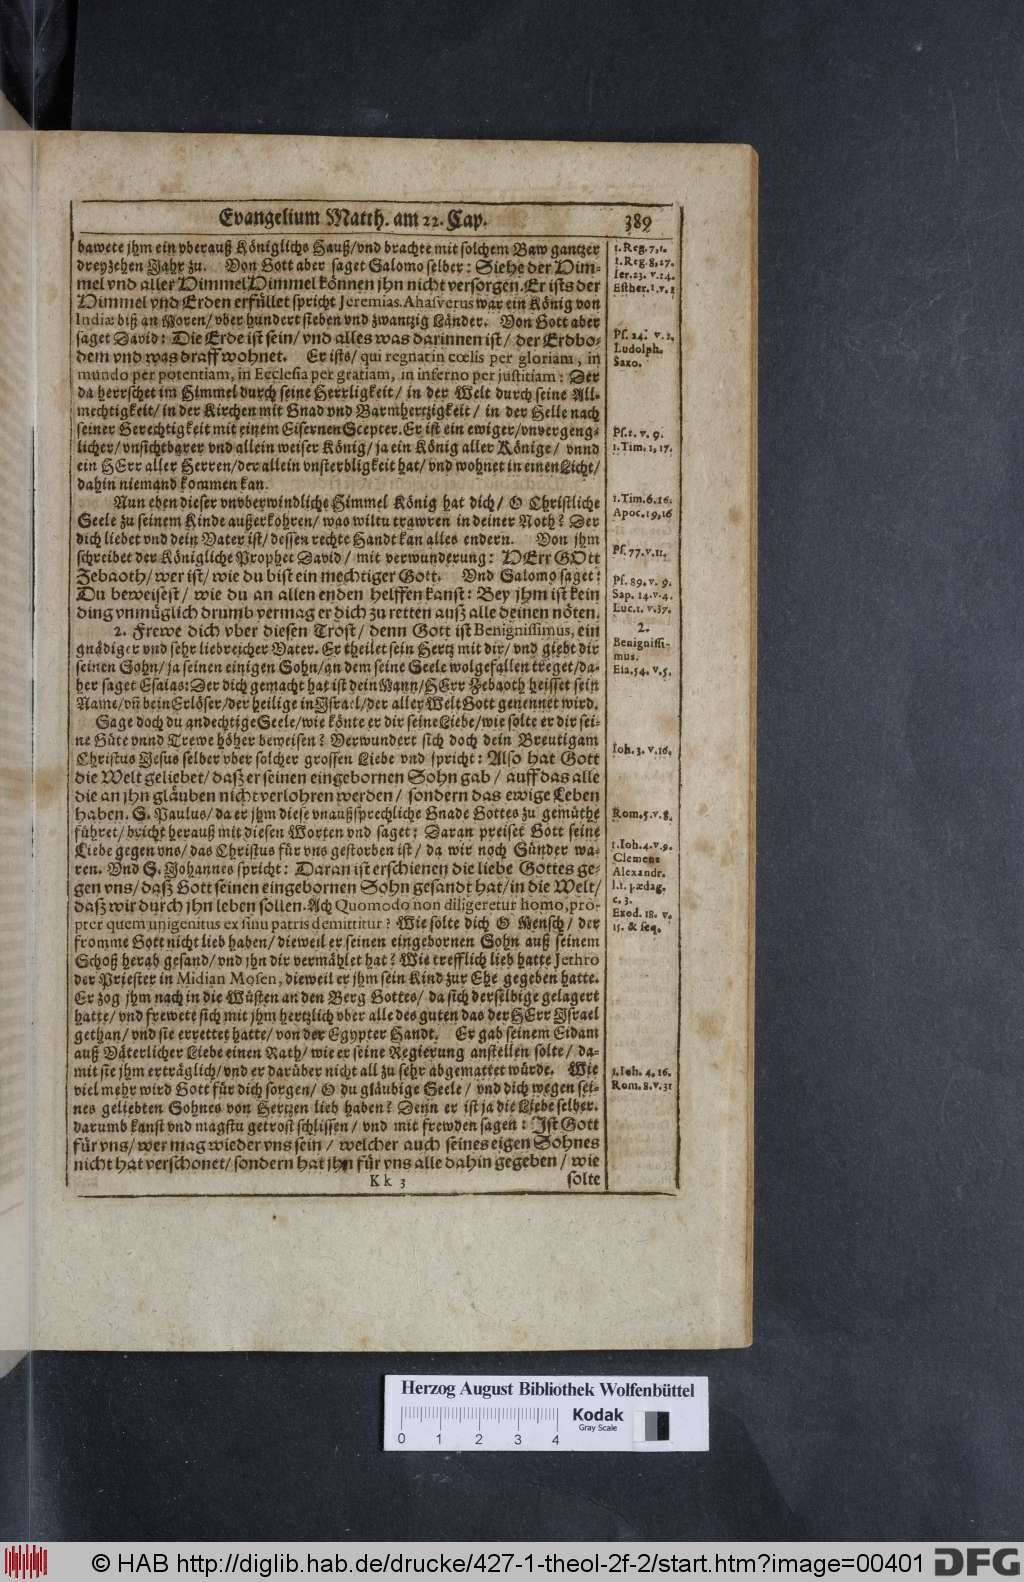 Evangelium Matth. am 22. Cap. 389
bawete jhm ein vberauß Königlichs Hauß/vnd brachte mit solchem Baw gantzer
dreyzehen Jahr zu. Von Gott aber saget Salomo selber: Siehe der Him-
mel vnd aller Himmel Himmel können jhn nicht versorgen. Er ists der
Himmel vnd Erden erfüllet spricht Jeremias. Ahasverus war ein König von
Indiæ biß an Moren/ vber hundert sieben vnd zwantzig Länder. Von Gott aber
saget David: Die Erde ist sein/ vnd alles was darinnen ist/ der Erdbo-
dem vnd was drauff wohnet. Er ists/ qui regnat in cœlis per gloriam, in
mundo per potentiam, in Ecclesia per gratiam, in inferno per justitiam: Der
da herrschet im Himmel durch seine Herrligkeit/ in der Welt durch seine All-
mechtigkeit/ in der Kirchen mit Gnad vnd Barmhertzigkeit/ in der Helle nach
seiner Gerechtigkeit mit einem Eisernen Scepter. Er ist ein ewiger/vnvergeng-
licher/ vnsichtbarer vnd allein weiser König/ ja ein König aller Könige/ vnnd
ein HErr aller Herren/der allein vnsterbligkeit hat/ vnd wohnet in einen Licht/
dahin niemand kommen kan.
Nun eben dieser vnvberwindliche Himmel König hat dich/ O Christliche
Seele zu seinem Kinde außerkohren/ was wiltu trawren in deiner Noth? Der
dich liebet vnd dein Vater ist/ dessen rechte Handt kan alles endern. Von jhm
schreibet der Königliche Prophet David/ mit verwunderung: HErr GOtt
Zebaoth/ wer ist/ wie du bist ein mechtiger Gott. Vnd Salomo saget:
Du beweisest/ wie du an allen enden helffen kanst: Bey jhm ist kein
ding vnmüglich drumb vermag er dich zu retten auß alle deinen nöten.
2. Frewe dich vber diesen Trost/ denn Gott ist Benignissimus, ein
gnädiger vnd sehr liebreicher Vater. Er theilet sein Hertz mit dir/ vnd giebt dir
seinen Sohn/ ja seinen einigen Sohn/an dem seine Seele wolgefallen treget/da-
her saget Esaias: Der dich gemacht hat ist dein Mann/HErr Zebaoth heisset sein
Name/vñ dein Erlöser/der heilige in Jsrael/der aller Welt Gott genennet wird.
Sage doch du andechtige Seele/wie könte er dir seine Liebe/wie solte er dir sei-
ne Güte vnnd Trewe höher beweisen? Verwundert sich doch dein Breutigam
Christus Jesus selber vber solcher grossen Liebe vnd spricht: Also hat Gott
die Welt geliebet/ daß er seinen eingebornen Sohn gab/ auff das alle
die an jhn gläuben nicht verlohren werden/ sondern das ewige Leben
haben. S. Paulus/ da er jhm diese vnaußsprechliche Gnade Gottes zu gemüthe
führet/ bricht herauß mit diesen Worten vnd saget: Daran preiset Gott seine
Liebe gegen vns/ das Christus für vns gestorben ist/ da wir noch Sünder wa-
ren. Vnd S. Johannes spricht: Daran ist erschienen die liebe Gottes ge-
gen vns/ daß Gott seinen eingebornen Sohn gesandt hat/in die Welt/
daß wir durch jhn leben sollen. Ach Quomodo non diligeretur homo, pro-
pter quem unigenitus ex sinu patris demittitur? Wie solte dich O Mensch/ der
fromme Gott nicht lieb haben/ dieweil er seinen eingebornen Sohn auß seinem
Schoß herab gesand/ vnd jhn dir vermählet hat? Wie trefflich lieb hatte Jethro
der Priester in Midian Mosen, dieweil er jhm sein Kind zur Ehe gegeben hatte.
Er zog jhm nach in die Wüsten an den Berg Gottes/ da sich derselbige gelagert
hatte/ vnd frewete sich mit jhm hertzlich vber alle des guten das der HErr Jsrael
gethan/ vnd sie errettet hatte/ von der Egypter Handt. Er gab seinem Eidam
auß Väterlicher Liebe einen Rath/ wie er seine Regierung anstellen solte/ da-
mit sie jhm erträglich/ vnd er darüber nicht all zu sehr abgemattet würde. Wie
viel mehr wird Gott für dich sorgen/ O du gläubige Seele/ vnd dich wegen sei-
nes geliebten Sohnes von Hertzen lieb haben? Denn er ist ja die Liebe selber.
darumb kanst vnd magstu getrost schlissen/ vnd mit frewden sagen: Jst Gott
für vns/ wer mag wieder vns sein/ welcher auch seines eigen Sohnes
nicht hat verschonet/ sondern hat jhn für vns alle dahin gegeben/ wie
Kk 3 solte
1. Reg. 7, 1.
1. Reg. 8, 27.
Ier. 23. v. 24.
Esther. 1. v. 1
Ps. 24. v. 1.
Ludolph.
Saxo.
Ps. 2. v. 9.
1. Tim. 1, 17.
1. Tim. 6. 16.
Apoc. 19, 16
Ps. 77. v. 11.
Ps. 89. v. 9.
Sap. 14. v. 4.
Luc. 1. v. 37.
2.
Benignissi-
mus.
Esa. 54. v. 5.
Ioh. 3. v. 16.
Rom. 5. v. 8.
1. Ioh. 4. v. 9.
Clemens
Alexandr.
l. 1. pædag.
c. 3.
Exod. 18. v.
15. & seq.
1. Ioh. 4. 16.
Rom. 8. v. 31
Herzog August Bibliothek Wolfenbüttel
Kodak
Gray Scale
0 1 2 3 4
© HAB http://diglib.hab.de/drucke/427-1-theol-2f-2/start.htm?image=00401 DFG